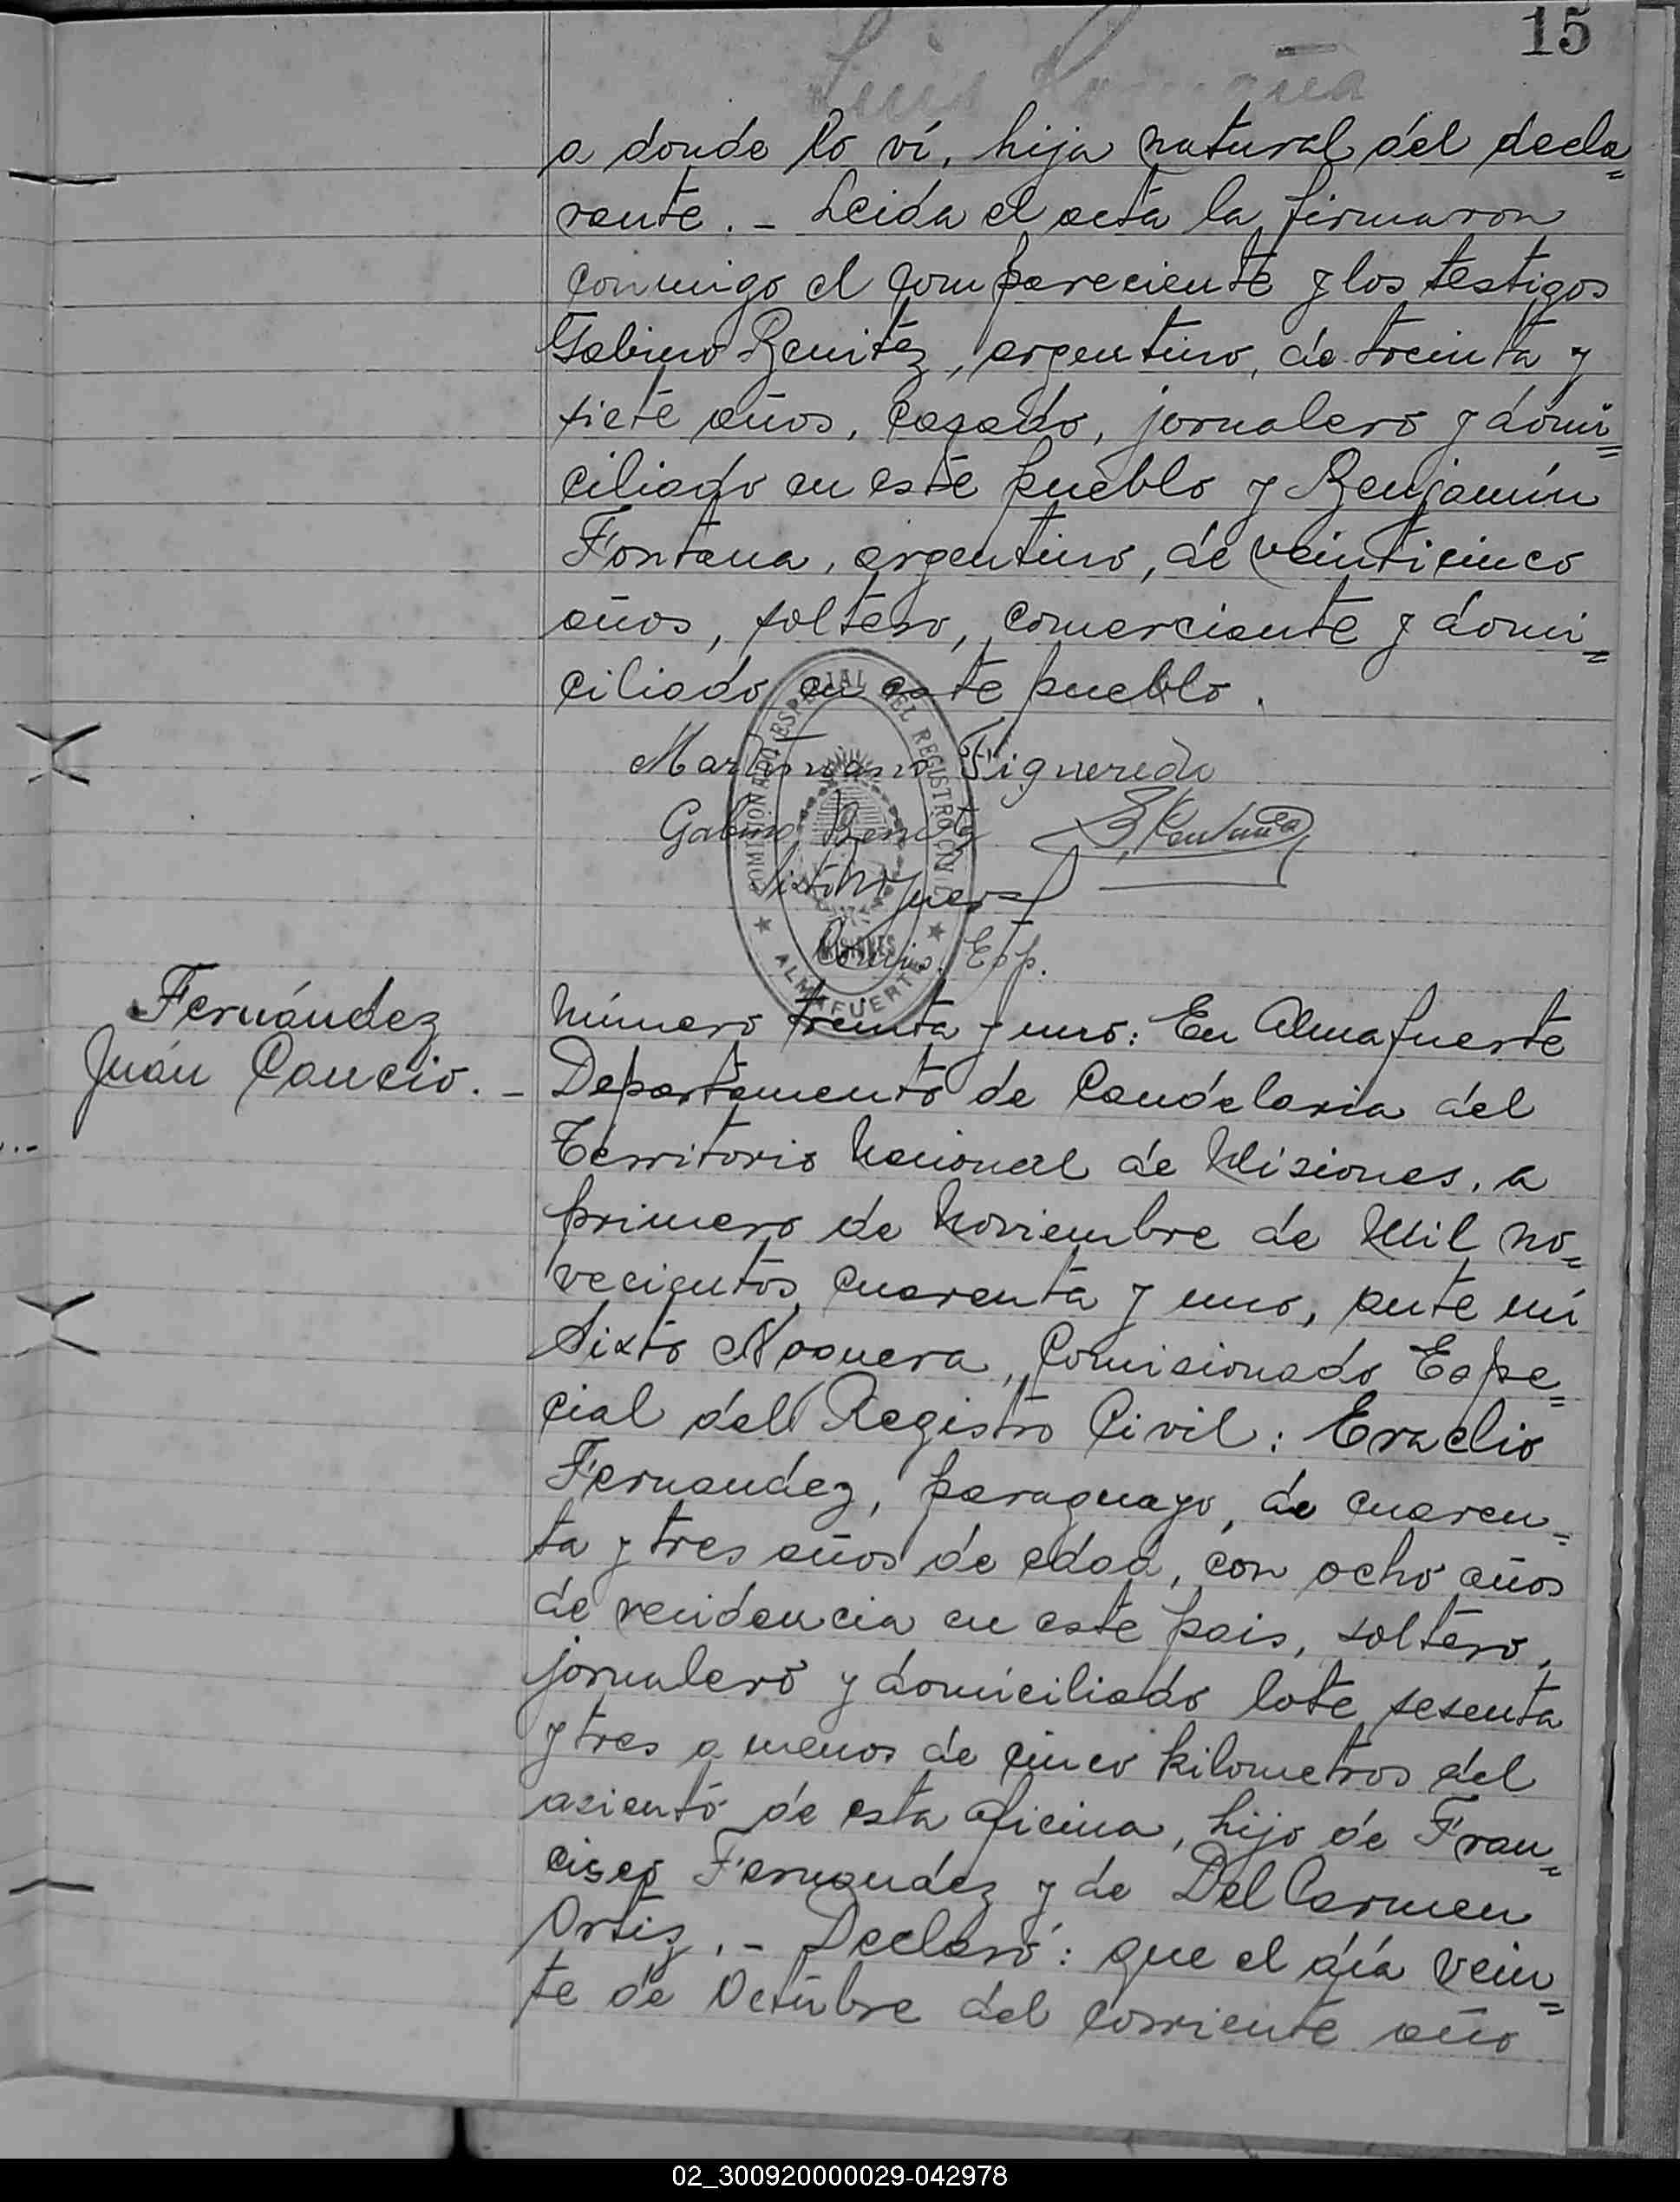 15
Luis Romaña
a donde lo ví, hija natural del decla=
rante. - Leida el acta la firmaron
conmigo el compareciente y los testigos
Gabino Benitez, argentino, de treinta y
siete años, casado, jornalero y domi=
ciliado en este pueblo y Benjamín
Fontana, argentino, de veinticinco
años, soltero, comerciante y domi=
ciliado en este pueblo.
COMISIONADO ESPECIAL DEL REGISTRO CIVIL
MISIONES
★ ALMAFUERTE ★
Figueredo
Gabino Benitez
Sixto Noguera
Comis. Esp.
Fernández
Juán Cancio. -
Número treinta y uno: En Almafuerte
Departamento de Candelaria del
Territorio Nacional de Misiones, a
primero de Noviembre de Mil no=
vecientos cuarenta y uno, ante mí
Sixto Noguera, Comisionado Espe=
cial del Registro Civil: Eraclio
Fernandez, paraguayo, de cuaren=
ta y tres años de edad, con ocho años
de recidencia en este pais, soltero,
jornalero y domiciliado lote sesenta
y tres a menos de cinco kilometros del
asiento de esta oficina, hijo de Fran=
cisco Fernandez y de Del Carmen
Ortiz. - Declaró: que el día vein=
te de Octubre del corriente año
02_300920000029-042978